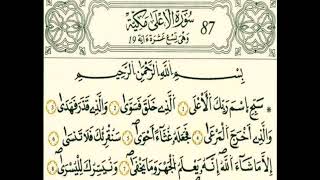 سُورَةُ الْأَعْلَى مَكِّيَّة 87
وَهِيَ تِسْعَ عَشْرَةَ ءَايَة 19
بِسْمِ اللَّهِ الرَّحْمَٰنِ الرَّحِيمِ
سَبِّحِ اِسْمَ رَبِّكَ الْأَعْلَى الَّذِي خَلَقَ فَسَوَّى وَالَّذِي قَدَّرَ فَهَدَى
وَالَّذِي أَخْرَجَ الْمَرْعَى فَجَعَلَهُ غُثَاءً أَحْوَى سَنُقْرِئُكَ فَلَا تَنسَى
إِلَّا مَا شَاءَ اللَّهُ إِنَّهُ يَعْلَمُ الْجَهْرَ وَمَا يَخْفَى وَنُيَسِّرُكَ لِلْيُسْرَى